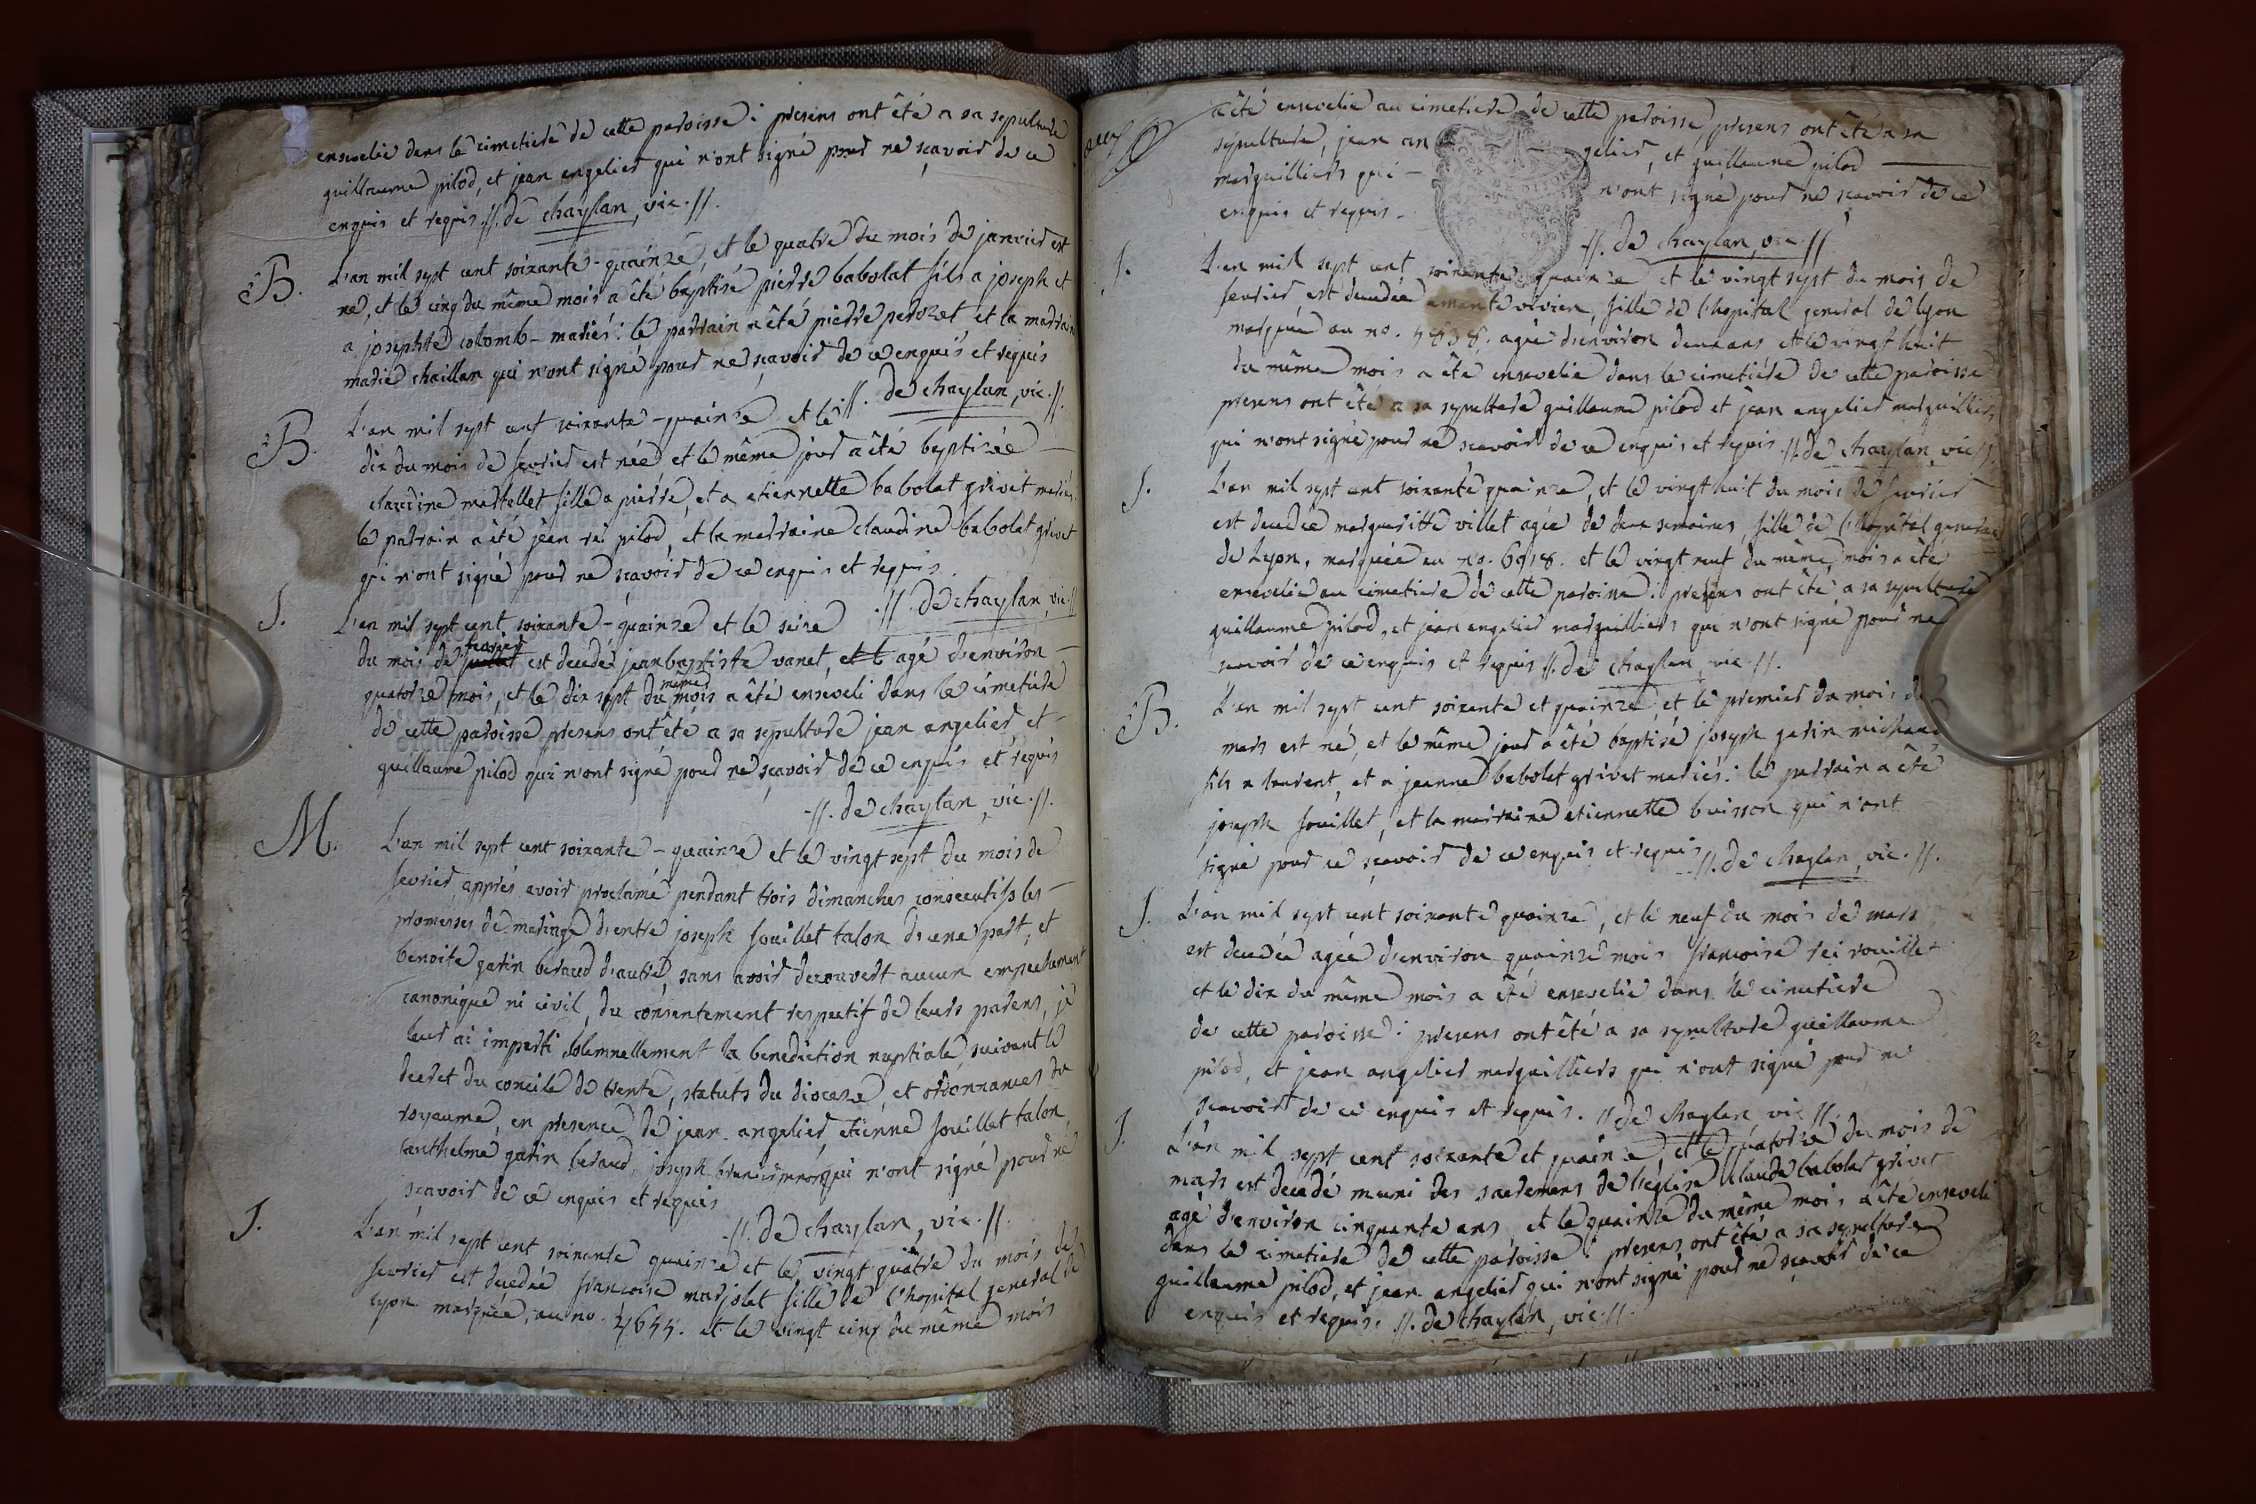 ensevelie dans le cimetiere de cette paroisse : presens ont été a sa sepulture
guillaume pilod, et jean angelier qui n'ont signé pour ne sçavoir de ce
enquis et requis .//. de chaylan, vic.//.
B. L'an mil sept cent soixante-quainze, et le quatre du mois de janvier est
né, et le cinq du même mois a été baptisé pierre babolat fils a joseph et
a josephte colomb - mariés : le parrain a été pierre perozet et la marraine
marie chaillan qui n'ont signé pour ne sçavoir de ce enquis et requis
.//. de chaylan, vic.//.
B. L'an mil sept cent soixante-quainze et le
dix du mois de fevrier est née et le même jour a été baptizée
claudine martellet fille a pierre, et a etiennette babolat grivet mariés.
le parrain a été jean rei pilod, et la marraine claudine babolat grivet
qui n'ont signé pour ne sçavoir de ce enquis et requis.
.//. de chaylan, vic.//
S. L'an mil sept cent soixante-quainze et le seize
du mois de fevrier est decedé jean baptiste vanet, et le agé d'environ
quatorze mois, et le dix sept du même mois a été enseveli dans le cimetiere
de cette paroisse presens ont été a sa sepulture jean angelier, et
guillaume pilod qui n'ont signé pour ne sçavoir de ce enquis et requis
.//. de chaylan, vic.//.
M. L'an mil sept cent soixante-quainze et le vingt sept du mois de
fevrier, apprés avoir proclamé pendant trois dimanches consecutifs les
promesses de mariage d'entre joseph fouillet talon d'une part, et
benoite garin beraud d'autre, sans avoir decouvert aucun empechement
canonique ni civil, du consentement respectif de leurs parens, je
leur ai imparti solemnellement la benediction nuptiale suivant le
decret du concile de trente, statuts du diocese, et ordonnances du
royaume, en presence de jean angelier, etienne fouillet talon,
anthelme garin beraud, joseph qui n'ont signé pour ne
scavoir de ce enquis et requis
.//. de chaylan, vic.//.
S. L'an mil sept cent soixante quainze et le vingt quatre du mois de
fevrier est decedée francoise marjolet fille de l'hopital general de
lyon marquée, au no. 4655. et le vingt cinq du même mois
a été ensevelie au cimetiere de cette paroisse, presens ont été a sa
sepulture, jean an - gelier, et guillaume pilod
marguilliers qui - n'ont signé pour ne scavoir de ce
enquis et requis -
.//. de chaylan, vic.//
S. L'an mil sept cent soixante quainze et le vingt sept du mois de
fevrier, est decedée vivien, fille de l'hopital general de lyon
marquée au no. agée d'environ deux ans et le vingt huit
du même mois a été ensevelie dans le cimetiére de cette paroisse
presens ont été a sa sepulture guillaume pilod et jean angelier marguilliers
qui n'ont signé pour ne scavoir de ce enquis et requis .//. de chaylan, vic.//.
S. L'an mil sept cent soixante quainze, et le vingt huit du mois de fevrier
est decedée marguerite villet agée de deux semaines, fille de l'hopital general
de Lyon, marquée au no. 6918. et le vingt neuf du même mois a été
ensevelie au cimetiere de cette paroisse : presens ont été a sa sepulture
guillaume pilod, et jean angelier marguilliers qui n'ont signé pour ne
scavoir de ce enquis et requis //. de chaylan, vic.//.
B. L'an mil sept cent soixante et quainze, et le premier du mois de
mars est né, et le même jour a été baptisé joseph garin michaud
fils a laurent, et a jeanne babolat grivet mariés : le parrain a été
joseph fouillet, et la marraine etiennette buisson qui n'ont
signé pour ce sçavoir de ce enquis et requis .//. de chaylan, vic.//.
S. L'an mil sept cent soixante quainze, et le neuf du mois de mars
est decedée agée d'environ quainze mois francoise rei rouillet
et le dix du même mois a été ensevelie dans le cimetiére
de cette paroisse : presens ont été a sa sepulture guillaume
pilod, et jean angelier marguilliers qui n'ont signé pour ne
scavoir de ce enquis et requis. // de chaylan vic //.
S. L'an mil sept cent soixante et quainze, et le quatorze du mois de
mars est decedé muni des sacremens de l'eglise claude babolat grivet
agé d'environ cinquante ans, et le quainze du même mois a été enseveli
dans le cimetiere de cette paroisse : presens ont été a sa sepulture
guillaume pilod, et jean angelier qui n'ont signé pour ne scavoir de ce
enquis et requis. .//. de chaylan, vic.//.